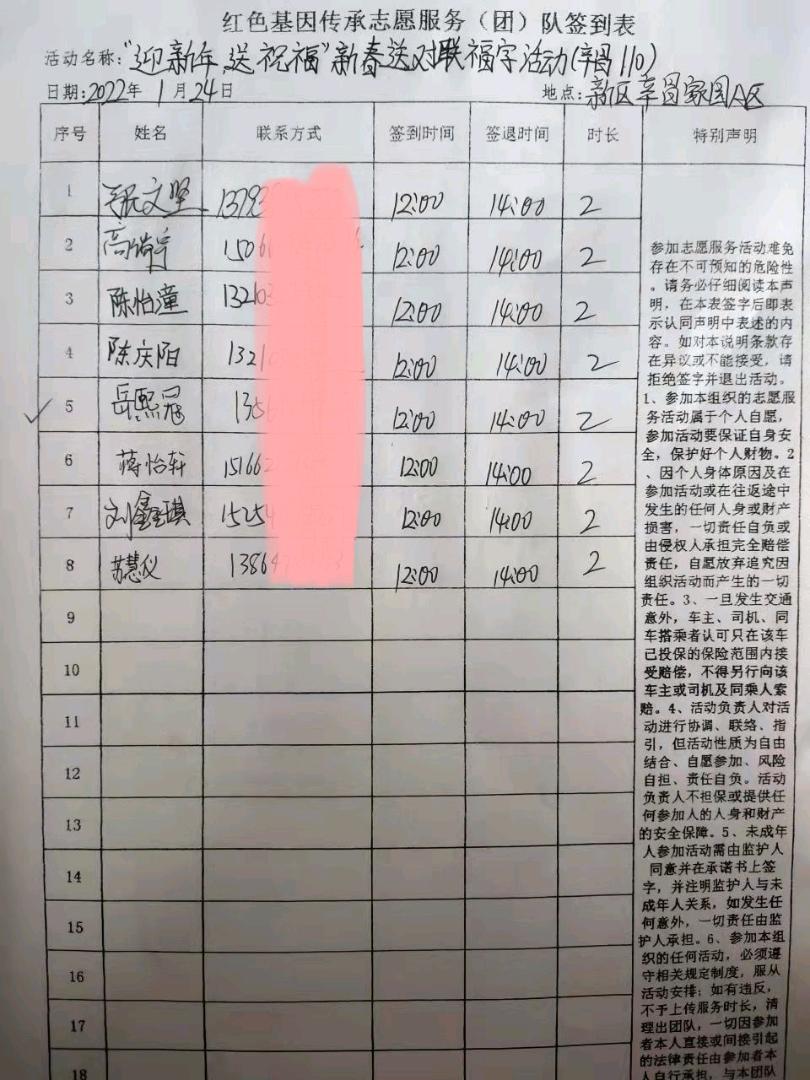 红色基因传承志愿服务(团)队签到表
活动名称:"迎新年,送祝福"新春送对联福字活动(辛昌110)
日期:2022年1月24日 地点:新区辛昌家园A区
序号 姓名 联系方式 签到时间 签退时间 时长 特别声明
1 文坚 13793 12:00 14:00 2
2 高 1506 12:00 14:00 2
3 陈怡潼 132103 12:00 14:00 2
4 陈庆阳 1321 12:00 14:00 2
5 岳熙冠 1356 12:00 14:00 2
6 蒋怡轩 151662 12:00 14:00 2
7 刘鑫琪 15254 12:00 14:00 2
8 苏慧仪 13864 12:00 14:00 2
9
10
11
12
13
14
15
16
17
18
参加志愿服务活动难免
存在不可预知的危险性
。请务必仔细阅读本声
明,在本表签字后即表
示认同声明中表述的内
容。如对本说明条款存
在异议或不能接受,请
拒绝签字并退出活动。
1、参加本组织的志愿服
务活动属于个人自愿,
参加活动要保证自身安
全,保护好个人财物。2
、因个人身体原因及在
参加活动或在往返途中
发生的任何人身或财产
损害,一切责任自负或
由侵权人承担完全赔偿
责任,自愿放弃追究因
组织活动而产生的一切
责任。3、一旦发生交通
意外,车主、司机、同
车搭乘者认可只在该车
已投保的保险范围内接
受赔偿,不得另行向该
车主或司机及同乘人索
赔。4、活动负责人对活
动进行协调、联络、指
引,但活动性质为自由
结合、自愿参加、风险
自担、责任自负。活动
负责人不担保或提供任
何参加人的人身和财产
的安全保障。5、未成年
人参加活动需由监护人
同意并在承诺书上签
字,并注明监护人与未
成年人关系,如发生任
何意外,一切责任由监
护人承担。6、参加本组
织的任何活动,必须遵
守相关规定制度,服从
活动安排;如有违反,
不予上传服务时长,清
理出团队,一切因参加
者本人直接或间接引起
的法律责任由参加者本
人自行承担,与本团队